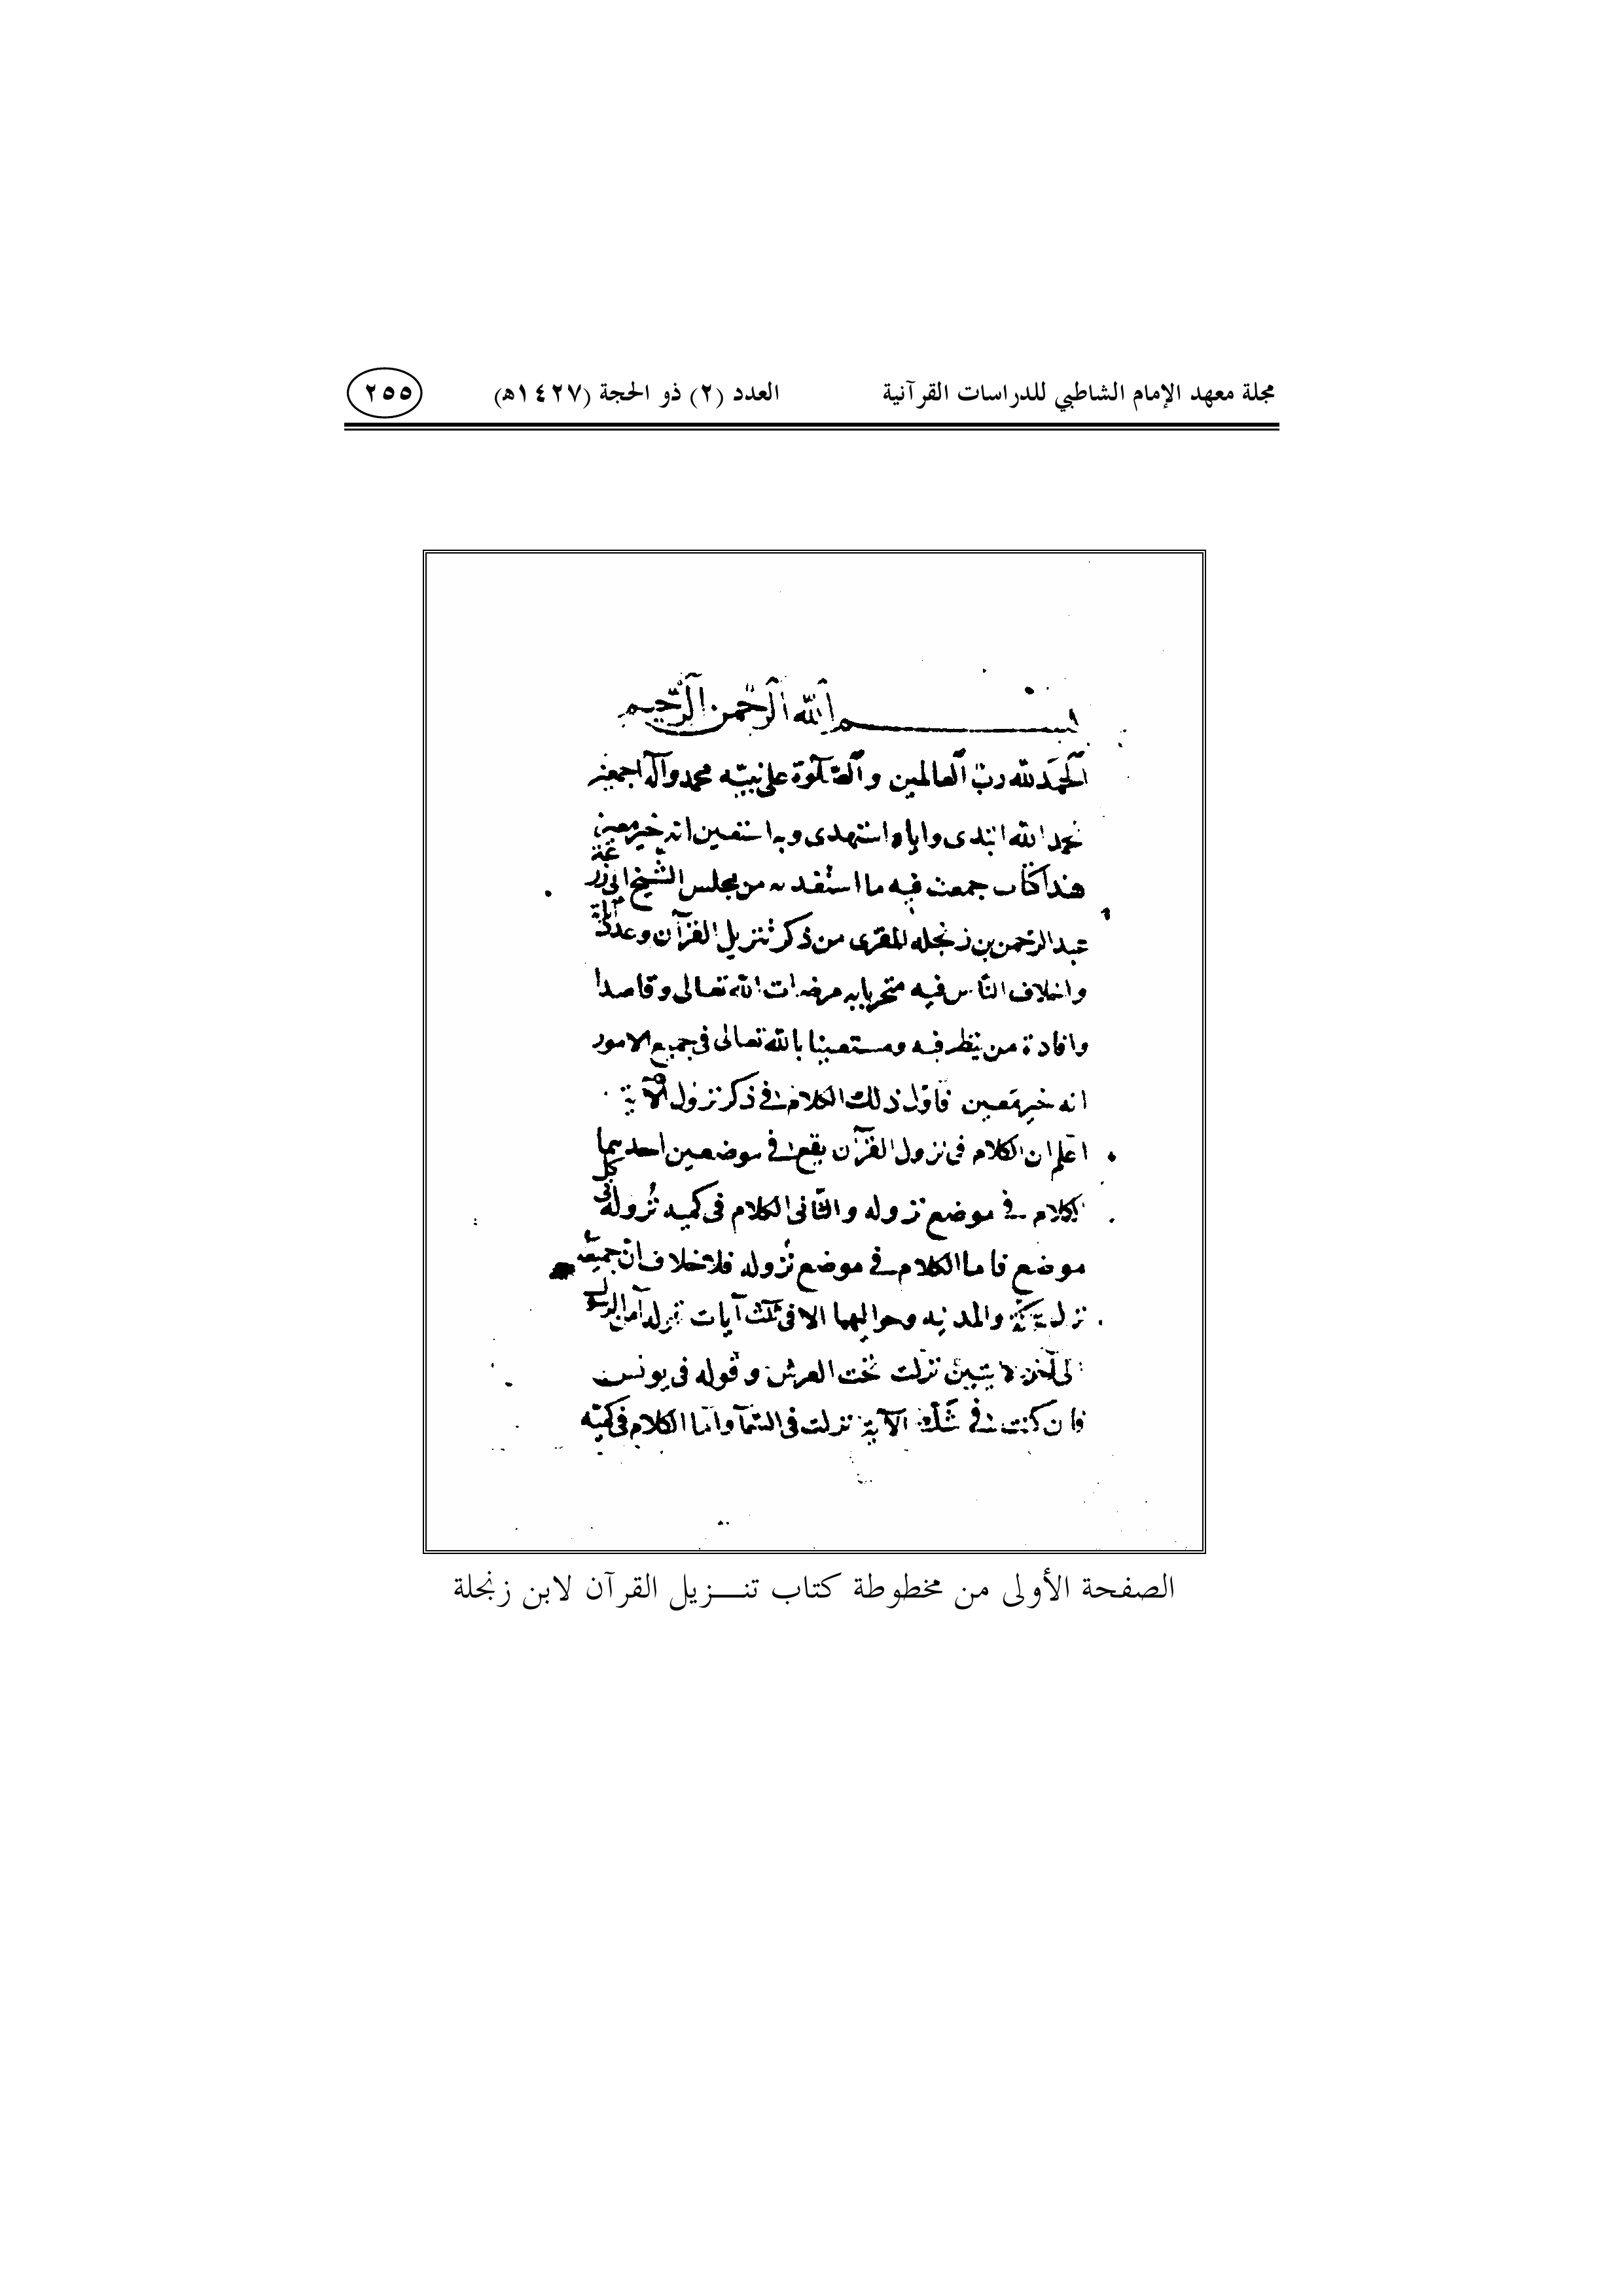 مجلة معهد الإمام الشاطبي للدراسات القرآنية العدد (٢) ذو الحجة (١٤٢٧هـ) ٢٥٥
بسم الله الرحمن الرحيم
الحمد لله رب العالمين والصلوة على نبيه محمد وآله اجمعين
نحمد الله ابتدى واياه استهدى وبه استعين انه خير معين
هذا كتاب جمعت فيه ما استفدته من مجلس الشيخ ابى زرعة
عبد الرحمن بن زنجله المقرى من ذكر تنزيل القرآن وعدد آياته
واختلاف الناس فيه متحريا به مرضات الله تعالى وقاصدا
وافادة من ينظر فيه ومستعينا بالله تعالى فى جميع الامور
انه خير معين فاول ذلك الكلام فى ذكر نزول الآية
اعلم ان الكلام فى نزول القرآن يقع فى موضعين احديهما
الكلام فى موضع نزوله والثانى الكلام فى كميه نزوله فى كل
موضع فاما الكلام فى موضع نزوله فلا خلاف ان جميعه
نزل بمكة والمدينه وحواليهما الا فى ثلث آيات قوله آمن الرسول
الى آخره لا يتبين نزلت تحت العرش وقوله فى يونس
فان كنت فى شك الآية نزلت فى السمآ واما الكلام فى كميه
الصفحة الأولى من مخطوطة كتاب تنـزيل القرآن لابن زنجلة